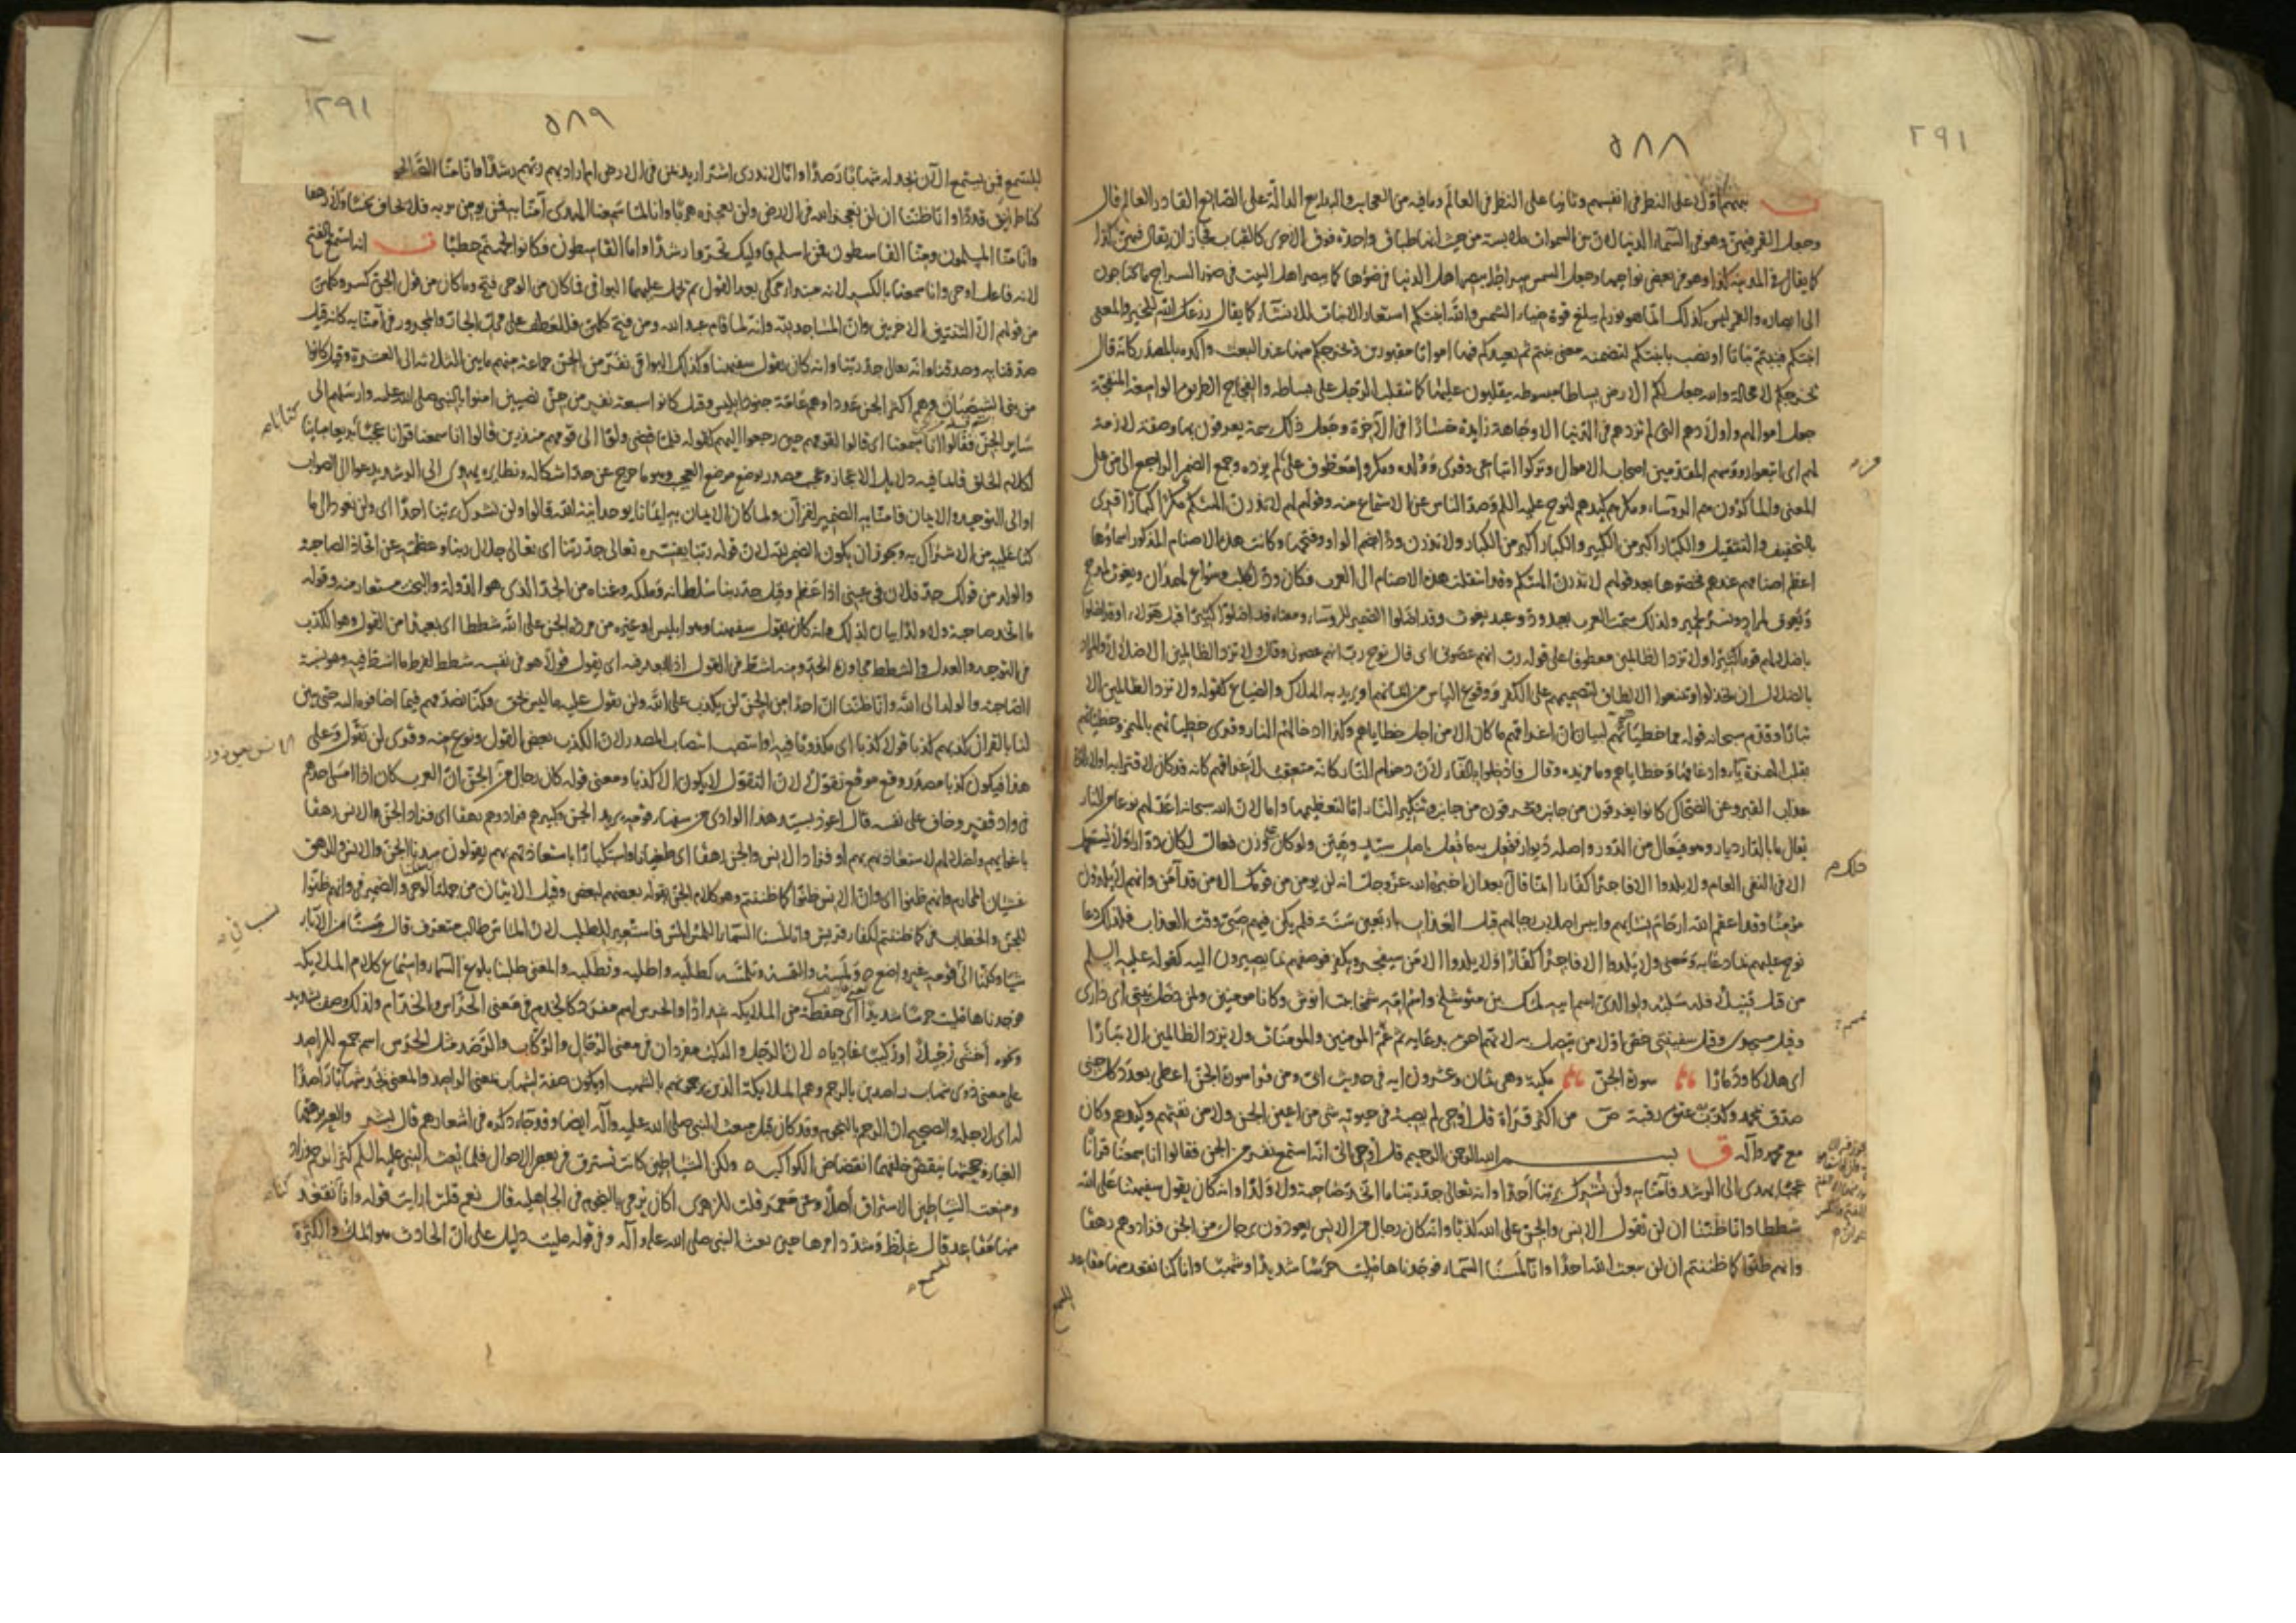 ٢٩١
٥٨٨
نبههم اولا على النظر فى انفسهم وثانيا على النظر فى العالم وما فيه من العجايب والبدايع الدالة على الصانع القادر العالم قال
وجعل القمر فيهن وهو فى السماء الدنيا لان بين السموات ملابسة من حيث انها طباق واحدة فوق الاخرى كالقباب فجاز ان يقال فيهن كذا
كما يقال فى المدينة كذا وهو فى بعض نواحيها وجعل الشمس سراجا يبصر اهل الدنيا فى ضوئها كما يبصر اهل البيت فى ضوء السراج ما يحتاجون
الى ابصاره والقمر ليس كذلك انما هو نور لم يبلغ قوة ضياء الشمس والله انبتكم استعار الانبات للانشاء كما يقال زرعك الله للخير والمعنى
انبتكم فنبتم نباتا او نصب بانبتكم لتضمنه معنى نبتم ثم يعيدكم فيها امواتا مقبورين ويخرجكم منها عند البعث واكده بالمصدر كانه قال
يخرجكم لا محالة والله جعل لكم الارض بساطا مبسوطة يتقلبون عليها كما يتقلب الرجل على بساطه والفجاج الطرق الواسعة المنفجة
جعل اموالهم واولادهم التى لم تزدهم فى الدنيا الا وجاهة زايدة خسارا فى الآخرة وجعل ذلك سمة يعرفون بها وصفة لازمة
لهم اى اتبعوا رؤوسهم المقدمين اصحاب الاموال وتركوا اتباعى وقرى وولده ومكروا معطوف على لم يزده وجمع الضمير الراجع الى من على
المعنى والماكرون هم الرؤساء ومكرهم كيدهم لنوح عليه السلم وصد الناس عن الاستماع منه وقولهم لهم لا تذرن الهتكم مكرا كبارا قرى
بالتخفيف والتثقيل والكبار اكبر من الكبير والكبار اكبر من الكبار ولا تذرن ودا بضم الواو وفتحها وكانت هذه الاصنام المذكور اسماؤها
اعظم اصنامهم عندهم فخصوها بعد قولهم لا تذرن الهتكم وقد انتقلت هذه الاصنام الى العرب فكان ود لكلب وسواع لهمدان ويغوث لمذحج
ويعوق لمراد ونسر لحمير ولذلك سمت العرب بعبد ود وعبد يغوث وقد اضلوا الضمير للرؤساء ومعناه قد اضلوا كثيرا قبل هؤلاء او قد اضلوا
باضلالهم قوما كثيرا ولا تزد الظالمين معطوف على قوله رب انهم عصونى اى قال نوح رب انهم عصونى وقال ولا تزد الظالمين الا ضلالا والمراد
بالضلال ان يخذلوا ويمنعوا الالطاف لتصميمهم على الكفر ووقوع الياس من ايمانهم او يريد به الهلاك والضياع كقوله ولا تزد الظالمين الا
تبارا وقدم سبحانه قوله مما خطيئاتهم لبيان ان اغراقهم ما كان الا من اجل خطاياهم وكذا ادخالهم النار وقرى خطيئاتهم بالهمزة وخطيّاتهم
بقلب الهمزة ياء وادغامها وخطاياهم وما مزيدة وقال فادخلوا بالفاء لان دخولهم النار كانه متعقب لاغراقهم كانه قد كان لاقترابه او لانه
عذاب القبر وعن الضحاك كانوا يغرقون من جانب ويحرقون من جانب وتنكير النار اما لتعظيمها واما لان الله سبحانه اعد لهم نوعا من النار
يقال ما بالدار ديار وهو فيعال من الدور واصله ديوار ففعل به ما فعل باصل سيد وميت ولو كان على وزن فعال لكان دوارا ولا يستعمل
الا فى النفى العام ولا يلدوا الا فاجرا كفارا انما قال بعد ان اخبره الله عز وجل انه لن يومن من قومك الا من قد آمن وانهم لا يلدون
مؤمنا وقد اعقم الله ارحام نسايهم وايبس اصلاب رجالهم قبل العذاب باربعين سنة فلم يكن فيهم صبى وقت العذاب فلذلك دعا
نوح عليهم بما دعا به ومعنى ولا يلدوا الا فاجرا كفارا ولا يلدوا الا من سيفجر ويكفر فوصفهم بما يصيرون اليه كقوله عليه السلم
من قتل قتيلا فله سلبه ولوالدى اسم ابيه لمك بن متوشلخ واسم امه شمخا بنت انوش وكانا مومنين ولمن دخل بيتى اى دارى
وقيل مسجدى وقيل سفينتى خص اولا من يتصل به لانهم احق بدعايه ثم عم المومنين والمومنات ولا تزد الظالمين الا تبارا
اى هلاكا ودمارا سورة الجن مكية وهى ثمان وعشرون اية فى حديث ابى ومن قرا سورة الجن اعطى بعدد كل جنى
صدق بمحمد وكذب به عتق رقبة ص من اكثر قراة قل اوحى لم يصبه فى حيوته شى من اعين الجن ولا من نفثهم وكيدهم وكان
مع محمد وآله بسم الله الرحمن الرحيم قل اوحى الى انه استمع نفر من الجن فقالوا انا سمعنا قرآنا
عجبا يهدى الى الرشد فآمنا به ولن نشرك بربنا احدا وانه تعالى جد ربنا ما اتخذ صاحبة ولا ولدا وانه كان يقول سفيهنا على الله
شططا وانا ظننا ان لن تقول الانس والجن على الله كذبا وانه كان رجال من الانس يعوذون برجال من الجن فزادوهم رهقا
وانهم ظنوا كما ظننتم ان لن يبعث الله احدا وانا لمسنا السماء فوجدناها ملئت حرسا شديدا وشهبا وانا كنا نقعد منها مقاعد
للسمع
٢٩١
٥٨٩
للسمع فمن يستمع الآن يجد له شهابا رصدا وانا لا ندرى اشر اريد بمن فى الارض ام اراد بهم ربهم رشدا وانا منا الصالحو
كنا طرايق قددا وانا ظننا ان لن نعجز الله فى الارض ولن نعجزه هربا وانا لما سمعنا الهدى آمنا به فمن يومن بربه فلا يخاف بخسا ولا رهقا
وانا منا المسلمون ومنا القاسطون فمن اسلم فاوليك تحروا رشدا واما القاسطون فكانوا لجهنم حطبا انه استمع بالفتح
لانه فاعل اوحى وانا سمعنا بالكسر لانه مبتدا محكى بعد القول ثم تحمل عليهما البواقى فما كان من الوحى فتح وما كان من قول الجن كسر وكلهن
من قولهم الا الثنتين الاخريين وان المساجد لله وانه لما قام عبد الله ومن فتح كلهن فللعطف على محل الجار والمجرور فى آمنا به كانه قيل
صدقناه وصدقنا انه تعالى جد ربنا وانه كان يقول سفيهنا وكذلك البواقى نفر من الجن جماعة منهم ما بين الثلاثة الى العشرة وقيل كانوا
من بنى الشيصبان وهم اكثر الجن عددا وهم عامة جنود ابليس وقيل كانوا سبعة نفر من جن نصيبين امنوا بالنبى صلى الله عليه وارسلهم الى
ساير الجن فقالوا انا سمعنا اى قالوا لقومهم حين رجعوا اليهم كقوله فلما قضى ولوا الى قومهم منذرين قالوا انا سمعنا قرآنا عجبا بديعا مباينا
لكلام الخلق قايما فيه دلايل الاعجاز وعجب مصدر يوضع موضع العجيب وهو ما خرج عن حد اشكاله ونظايره يهدى الى الرشد يدعوا الى الصواب
او الى التوحيد والايمان فامنا به الضمير للقرآن ولما كان الايمان به ايمانا بوحدانية الله قالوا ولن نشرك بربنا احدا اى ولن نعود الى ما
كنا عليه من الاشراك به ويجوز ان يكون الضمير لله لان قوله ربنا يفسره تعالى جد ربنا اى تعالى جلال ربنا وعظمته عن اتخاذ الصاحبة
والولد من قولك جد فلان فى عينى اذا عظم وقيل جد ربنا سلطانه وملكه وغناه من الجد الذى هو الدولة والبخت مستعار منه وقوله
ما اتخذ صاحبة ولا ولدا بيان لذلك وانه كان يقول سفيهنا وهو ابليس او غيره من مردة الجن على الله شططا اى بعيدا من القول وهو الكذب
فى التوحيد والعدل والشطط مجاوزة الحد ومنه اشط فى القول اذا ابعد فيه اى يقول قولا هو فى نفسه شطط لفرط ما اشط فيه وهو نسبة
الصاحبة والولد الى الله وانا ظننا ان احدا من الجن لن يكذب على الله ولن يقول عليه ما ليس بحق فكنا نصدقهم فيما اضافوه اليه حتى تبين
لنا بالقرآن كذبهم كذبا قولا كذبا اى مكذوبا فيه او انتصب انتصاب المصدر لان الكذب بعض القول ونوع منه وقرى لن تقول وعلى
هذا فيكون كذبا مصدرا وقع موقع تقولا لان التقول لا يكون الا كذبا ومعنى قوله كان رجال من الجن ان العرب كان اذا امسى احدهم
فى واد قفر وخاف على نفسه قال اعوذ بسيد هذا الوادى من سفهاء قومه يريد الجن وكبيرهم فزادوهم رهقا اى فزاد الجن الانس رهقا
باغوايهم واضلالهم لاستعاذتهم بهم او فزاد الانس الجن رهقا اى طغيانا واستكبارا باستعاذتهم بهم يقولون سدنا الجن والانس والرهق
غشيان المحارم وانهم ظنوا اى وان الانس ظنوا كما ظننتم وهو كلام الجن يقوله بعضهم لبعض وقيل الايتان من جملة الوحى والضمير فى وانهم ظنوا
للجن والخطاب فى كما ظننتم لكفار قريش وانا لمسنا السماء اللمس المس فاستعير للطلب لان الماس طالب متعرف قال مسسنا من الآباء
شيئا وكلنا الى قومه غير واضع ولمسه والتمسه وتلمسه كطلبه واطلبه وتطلبه والمعنى طلبنا بلوغ السماء واستماع كلام الملايكة
فوجدناها ملئت حرسا شديدا اى حفظة من الملايكة شدادا والحرس اسم مفرد كالخدم فى معنى الحراس والخدام ولذلك وصف بشديد
ونحوه اخشى رجيلا او ركيبا غاديا لان الرجل والركب مفردان فى معنى الرجال والركاب والرصد مثل الحرس اسم جمع للراصد
على معنى ذوى شهاب راصدين بالرجم وهم الملايكة الذين يرجمونهم بالشهب او يكون صفة لشهاب بمعنى الراصد والمعنى يجد شهابا راصدا
له اى لاجله والصحيح ان الرجم بالنجوم وقد كان قبل مبعث النبى صلى الله عليه وآله ايضا وقد جاء ذكره فى اشعارهم قال بشر والعير يرهقها
الغبار وجحشها ينقض خلفهما انقضاض الكواكب ولكن الشياطين كانت تسترق فى بعض الاحوال فلما بعث النبى عليه السلم كثر الرجم وزاد
ومنعت الشياطين الاستراق اصلا وعن معمر قلت للزهرى اكان يرمى بالنجوم فى الجاهلية قال نعم قلت ارايت قوله وانا كنا نقعد
منها مقاعد قال غلظ وشدد امرها حين بعث النبى صلى الله عليه وآله وفى قوله ملئت دليل على ان الحادث هو الملء والكثرة